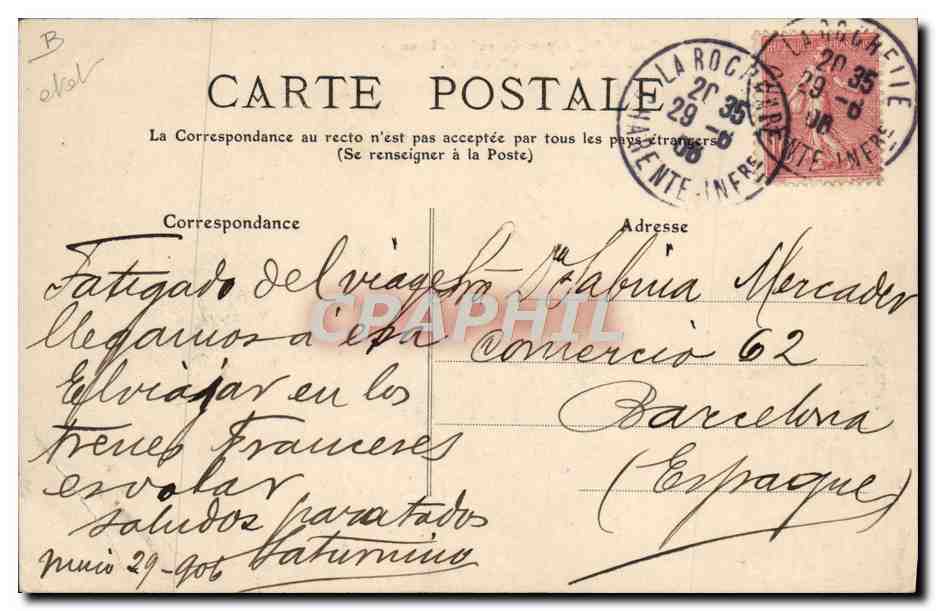 B
CARTE POSTALE
La Correspondance au recto n'est pas acceptée par tous les pays étrangers
(Se renseigner à la Poste)
LA ROCHELLE
20 35
29 -6
06
CHARENTE-INFRE
LA ROCHELLE
20 35
29 -6
06
CHARENTE-INFRE
Correspondance
Fatigado del viage
llegamos á esta
El viajar en los
trenes Franceses
es volar
saludos para todos
Saturnino
Junio 29-906
Adresse
Sra Dna Sabina Mercader
Comercio 62
Barcelona
(Espagne)
CPAPHIL